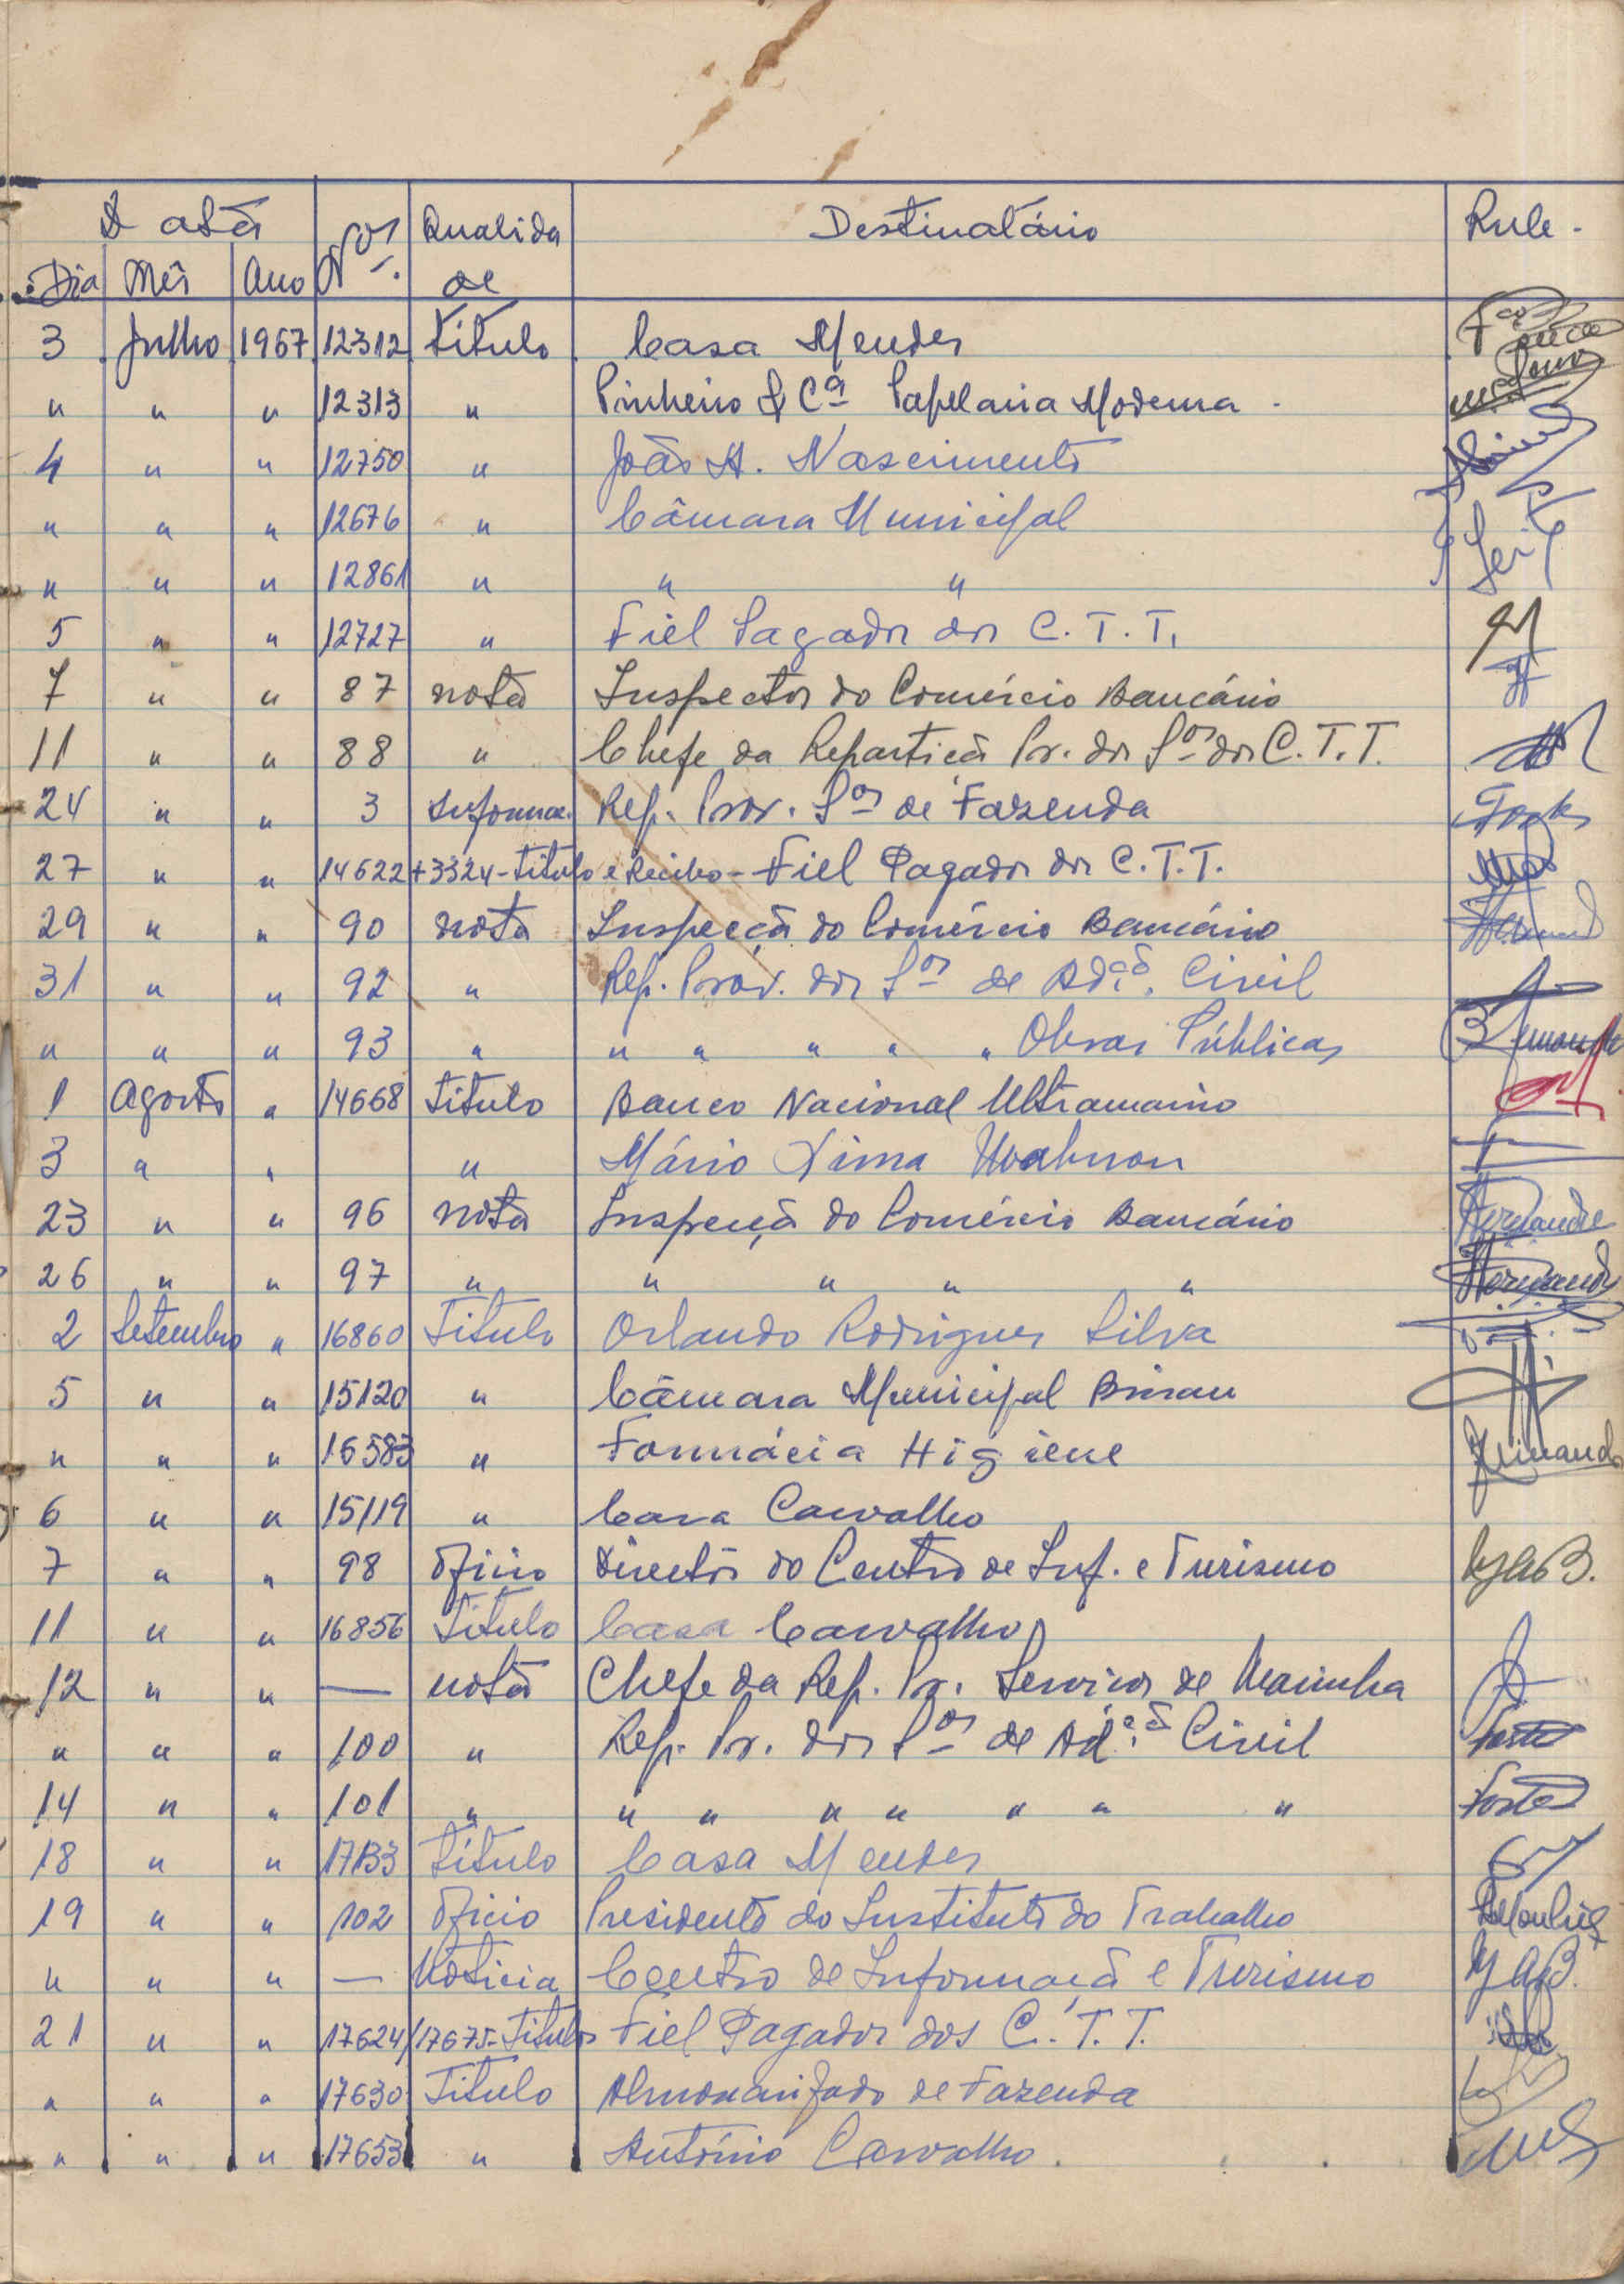 Data Nos. Qualida Destinatário Rule.
Dia Mês Ano de
3 Julho 1967 12312 Título Casa Mendes
" " " 12313 " Pinheiro & Cª Papelaria Moderna.
4 " " 12750 " João A. Nascimento
" " " 12676 " Câmara Municipal
" " " 12861 " " "
5 " " 12727 " Fiel Pagador dos C.T.T.
7 " " 87 nota Inspector do Comércio Bancário
11 " " 88 " Chefe da Repartiçã Pr. dos Sos dos C.T.T.
24 " " 3 Informac. Rep. Prov. Sos de Fazenda
27 " " 14622 + 3324 - Título e Recibo - Fiel Pagador dos C.T.T.
29 " " 90 nota Inspecçã do Comércio Bancário
31 " " 92 " Rep. Prov. dos Sos de Adcã. Civil
" " " 93 " " " " " " Obras Públicas
1 Agosto " 14668 Título Banco Nacional Ultramarino
3 " " " Mário Lima Wahnon
23 " " 96 nota Inspecçã do Comércio Bancário
26 " " 97 " " " " "
2 Setembro " 16860 Título Orlando Rodrigues Silva
5 " " 15120 " Câmara Municipal Bissau
" " " 16583 " Farmácia Higiene
6 " " 15119 " Casa Carvalho
7 " " 98 Ofício Director do Centro de Inf. e Turismo
11 " " 16856 Título Casa Carvalho
12 " " — nota Chefe da Rep. Pr. Serviços de Marinha
" " " 100 " Rep. Pr. dos Sos de Adcã Civil
14 " " 101 " " " " " " " "
18 " " 17133 Título Casa Mendes
19 " " 102 Ofício Presidente do Instituto do Trabalho
" " " — Notícia Centro de Informaçã e Turismo
21 " " 17624/17675 - Títulos Fiel Pagador dos C.T.T.
" " " 17630 Título Almoxarifado de Fazenda
" " " 17653 " António Carvalho.